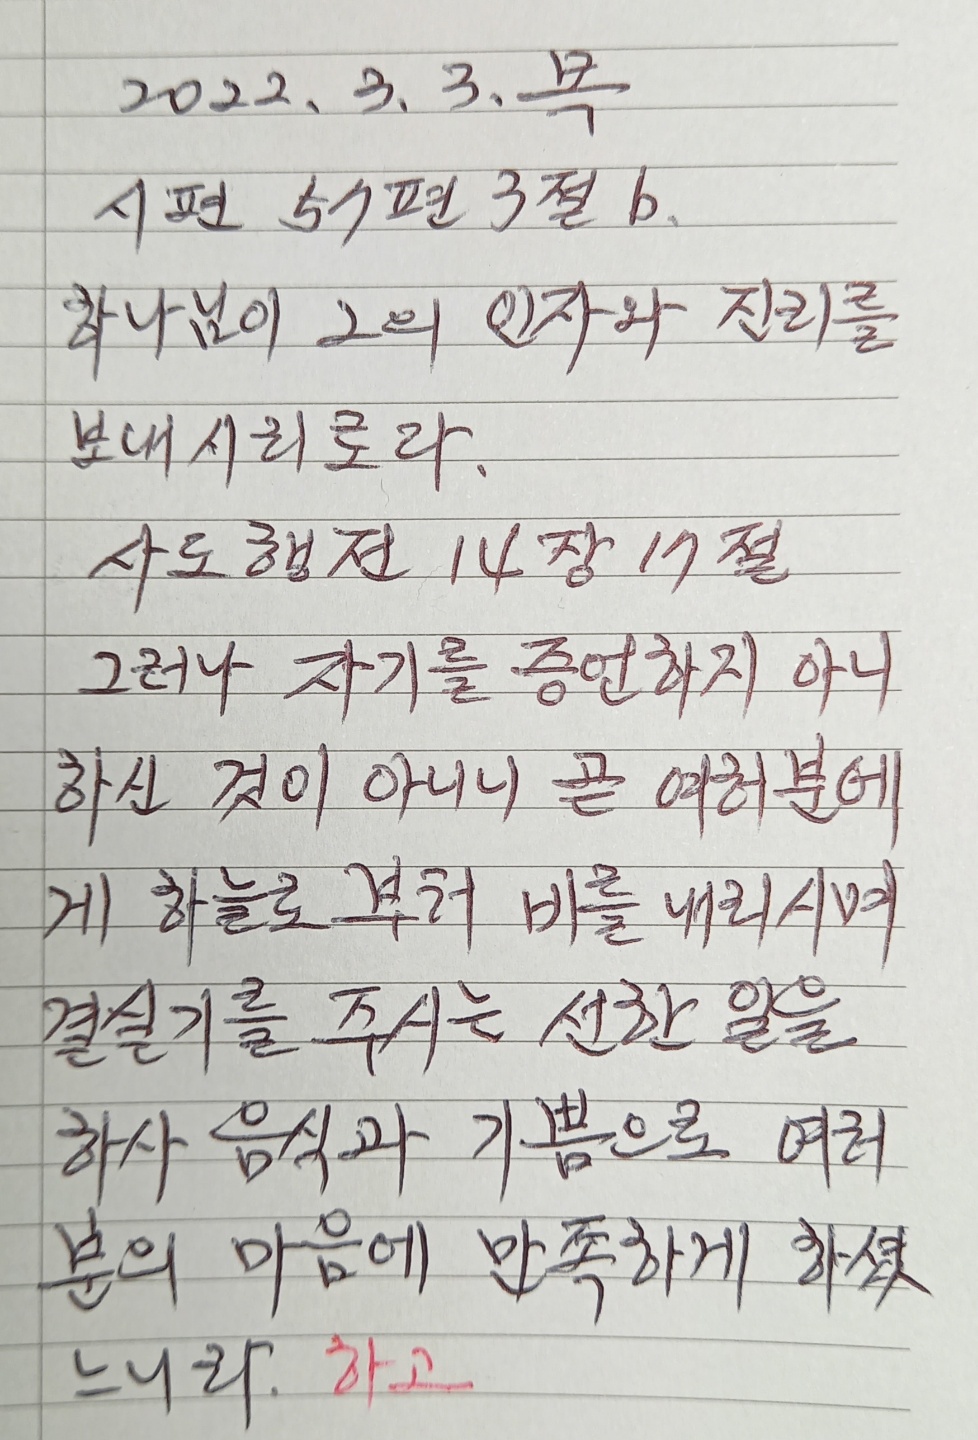 2022. 3. 3. 목
시편 57편 3절 b.
하나님이 그의 인자와 진리를
보내시리로다.
사도행전 14장 17절
그러나 자기를 증언하지 아니
하신 것이 아니니 곧 여러분에
게 하늘로부터 비를 내리시며
결실기를 주시는 선한 일을
하사 음식과 기쁨으로 여러
분의 마음에 만족하게 하셨
느니라. 하고